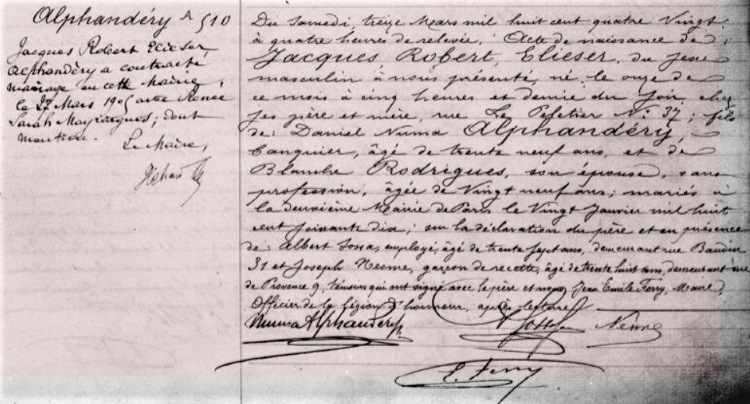 Alphandéry 510
Jacques Robert Elieser
Alphandéry a contracté
mariage en cette Mairie
le 27 Mars 1905 avec Renée
Sarah dont
mention.
Le Maire,
Du Samedi, treize Mars mil huit cent quatre Vingt
à quatre heures de relevée. Acte de naissance de:
Jacques, Robert, Elieser, du sexe
masculin à nous présenté, né le onze de
ce mois à cinq heures et demie du soir, chez
ses père et mère, rue Le Peletier No 37; fils
de: Daniel Numa Alphandéry,
banquier, âgé de trente neuf ans, et de
Blanche Rodrigues, son épouse, sans
profession, âgée de Vingt neuf ans; mariés à
la deuxième Mairie de Paris le Vingt Janvier mil huit
cent soixante dix; sur la déclaration du père et en présence
de: Albert employé, âgé de trente sept ans, demeurant rue Baudin
31 et Joseph Nesme, garçon de recette, âgé de trente huit ans, demeurant rue
de Provence 9, témoins qui ont signé avec le père et nous, Jean Emile Ferry, Maire,
Officier de la Légion d'honneur, après lecture.
Numa Alphandéry Nesme
E. Ferry